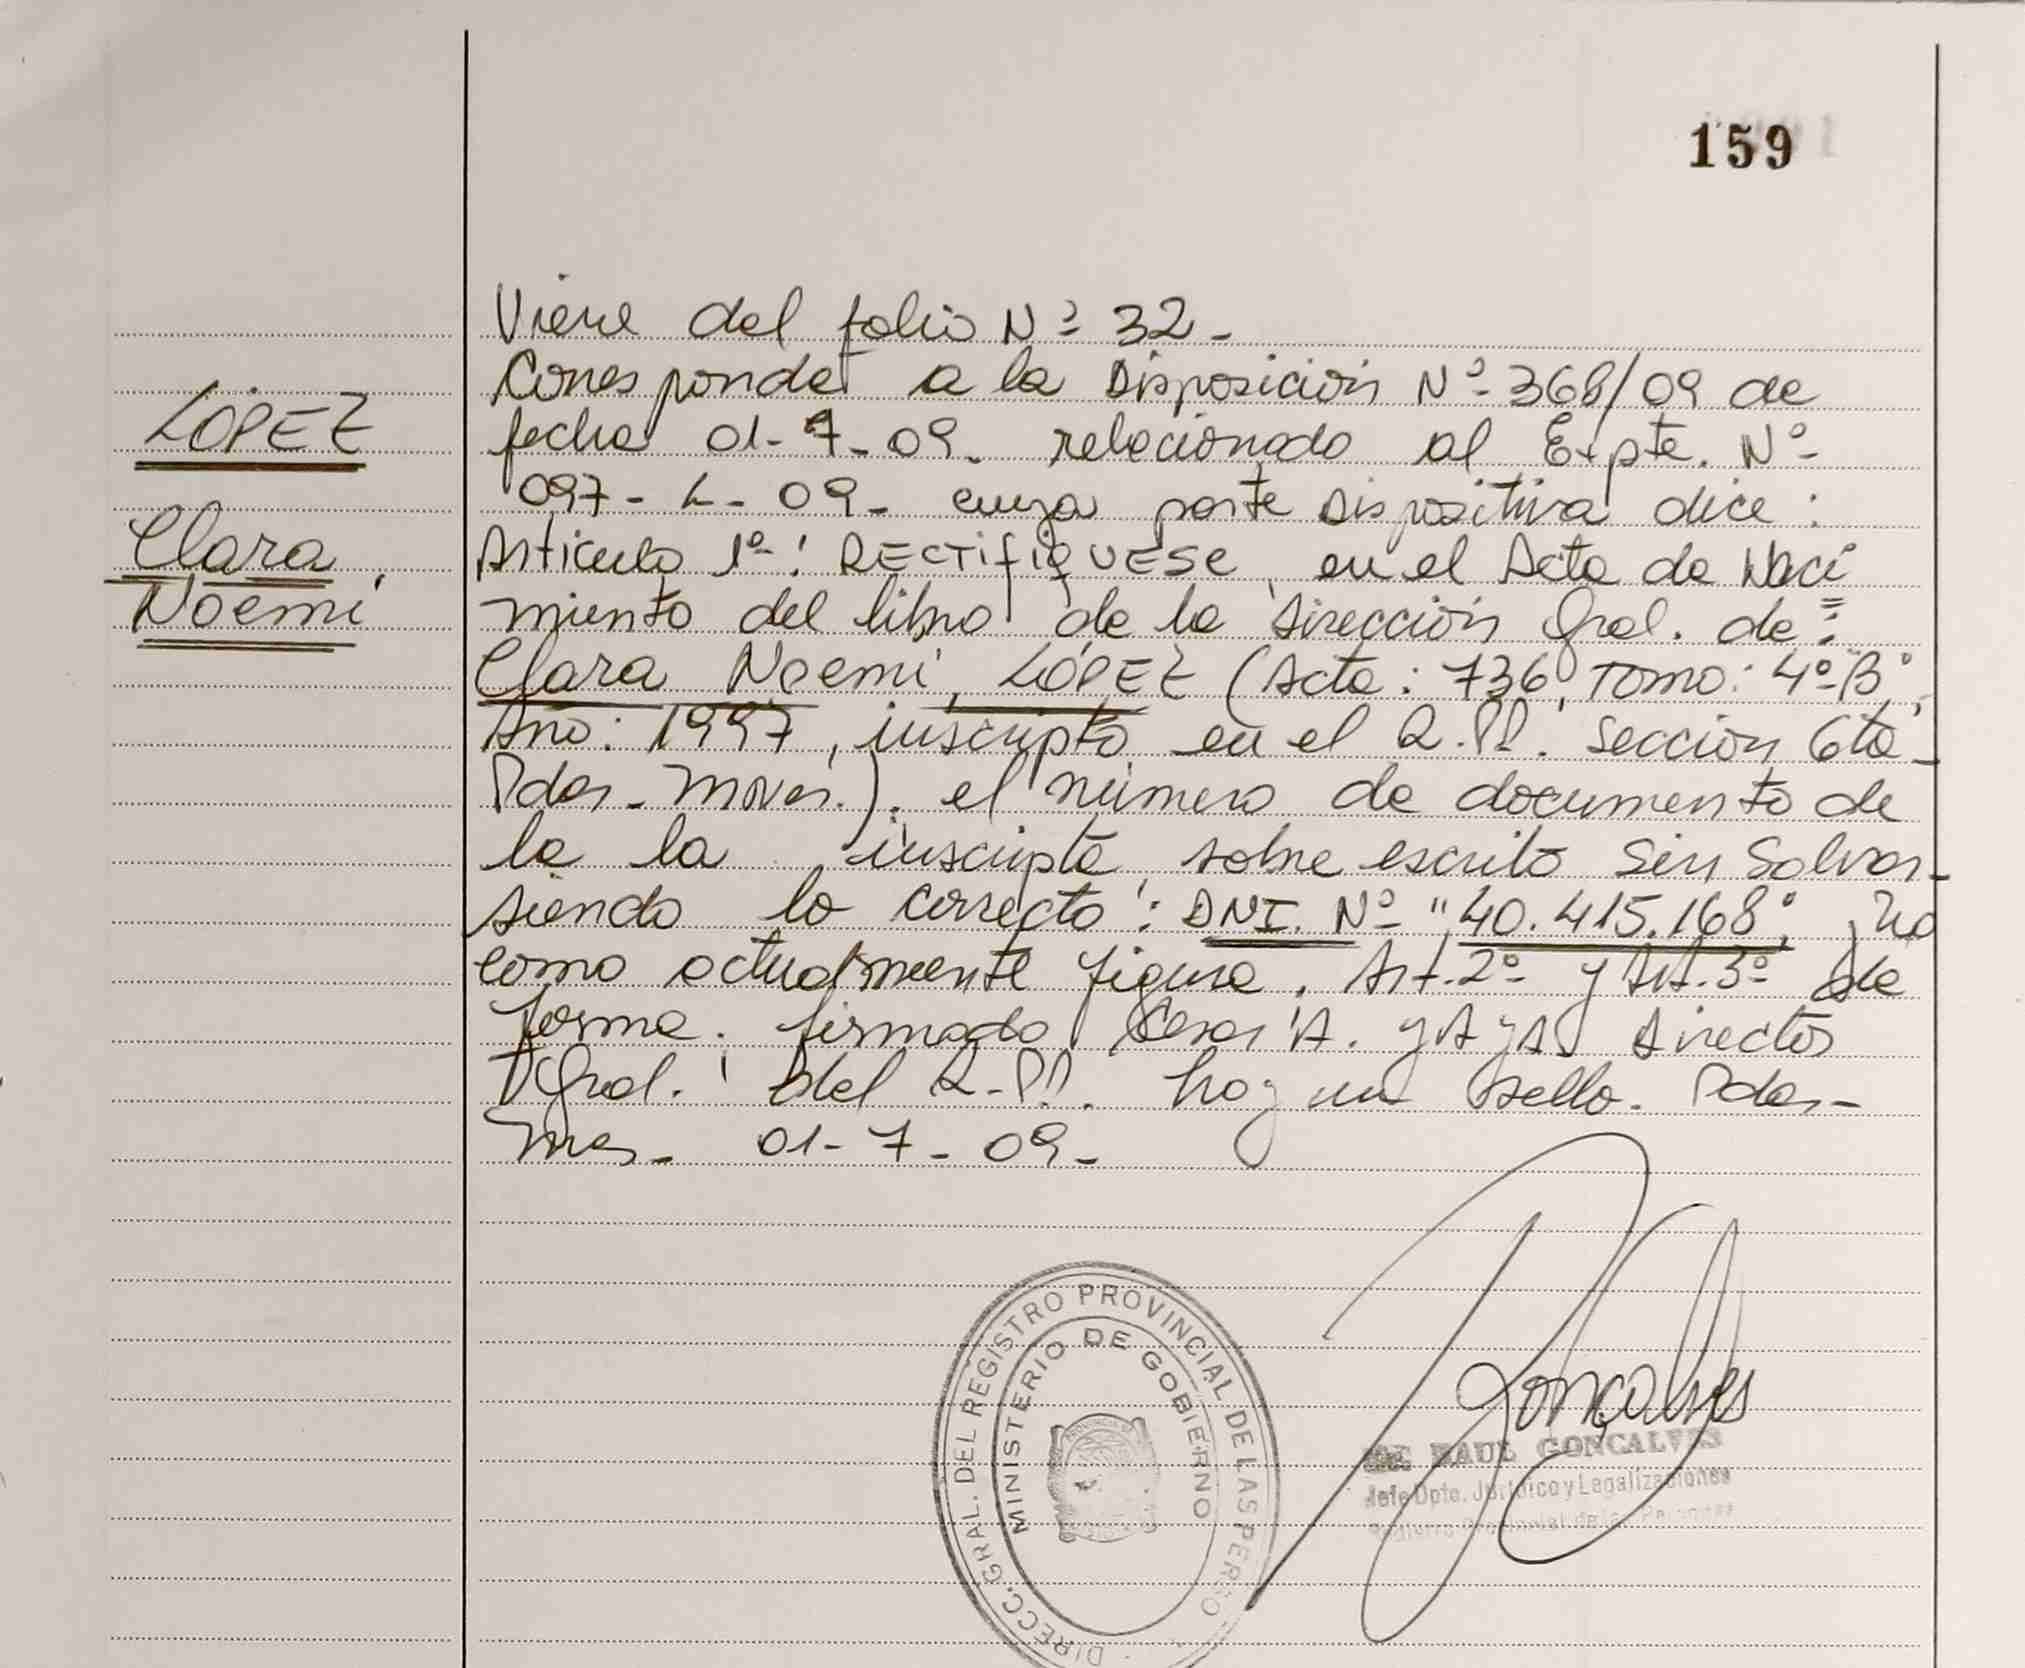 159
Viene del folio Nº 32-
Corresponde a la Disposición Nº 368/09 de
fecha 01-7-09- relacionado al Expte. Nº
097-L-09- cuya parte Dispositiva dice:
Articulo 1º: RECTIFIQUESE, en el Acta de Naci
miento del libro de la Dirección Gral. de:
Clara Noemí, LÓPEZ (Acta: 736, Tomo: 4º-B,
Año: 1997, inscripta en el R.PP. Sección 6ta-
Pdas-Mnes.). el número de documento de
la la inscripta sobre escrito Sin Salvar-
siendo lo correcto: DNI. Nº "40.415.168", no
como actualmente figura. Art.2º y Art.3º de
forma. firmado Cesar A. YAYA Director
Gral. del R.PP. hay un sello. Pdas-
Mnes- 01-7-09-
LÓPEZ
Clara,
Noemí
Gonçalves
RAUL GONÇALVES
Jefe Dpto. Jurídico y Legalizaciones
Registro Provincial de las Personas
DIRECC. GRAL. DEL REGISTRO PROVINCIAL DE LAS PERSO
MINISTERIO DE GOBIERNO